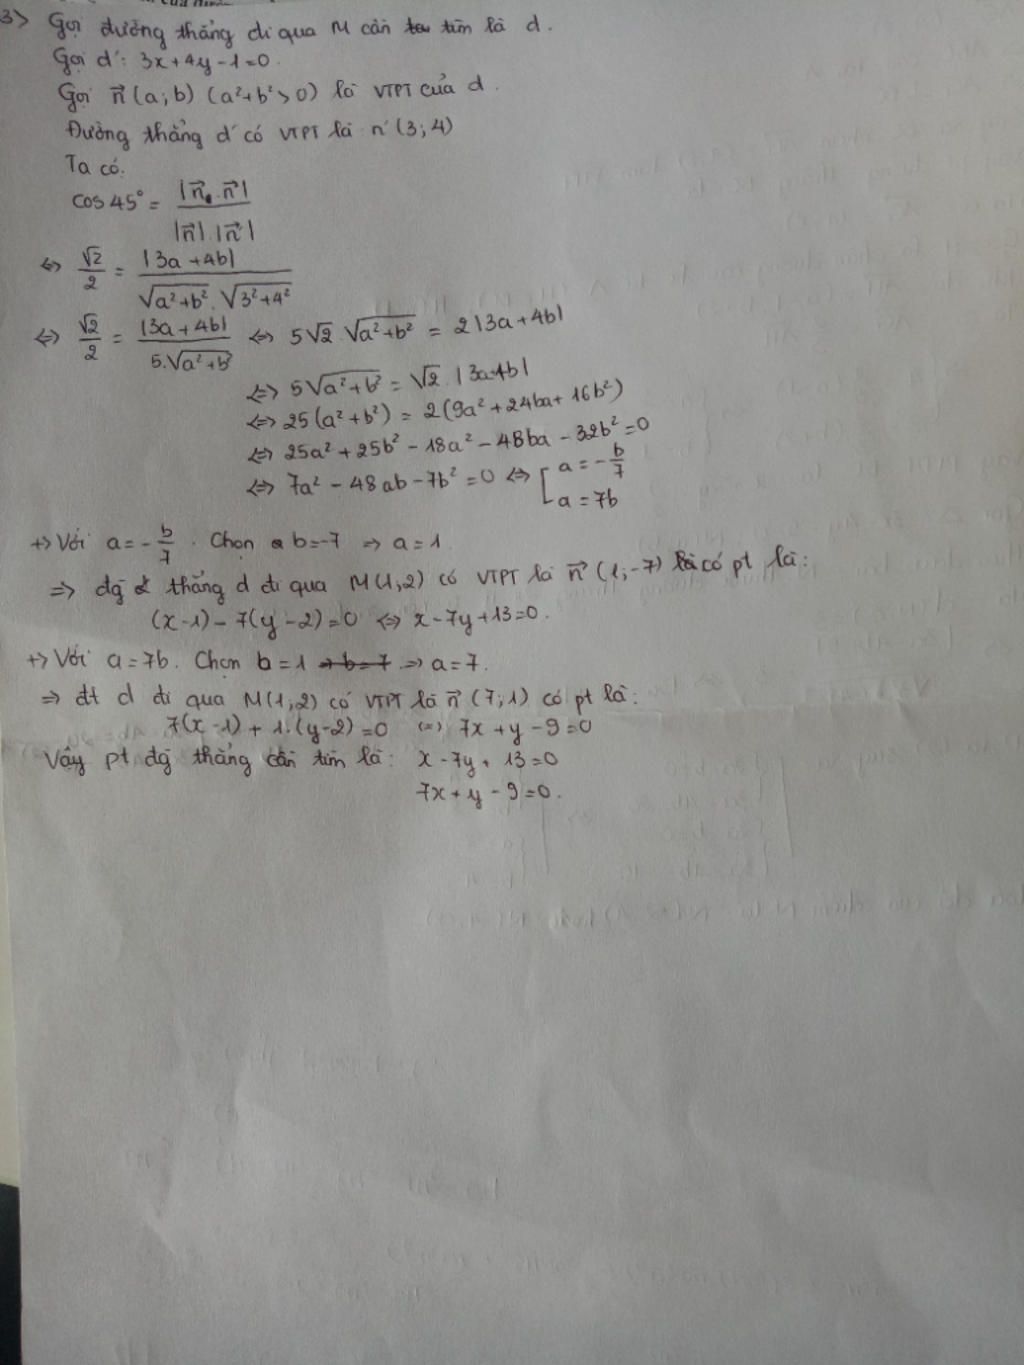 3> Gọi đường thẳng đi qua M cần tìm là d.
Gọi d': 3x+4y-1=0.
Gọi n⃗(a;b) (a²+b²>0) là VTPT của d.
Đường thẳng d' có VTPT là n'(3;4)
Ta có:
cos45° = |n⃗.n⃗'| / |n⃗|.|n⃗'|
⇔ √2/2 = |3a+4b| / √(a²+b²).√(3²+4²)
⇔ √2/2 = |3a+4b| / 5.√(a²+b²) ⇔ 5√2.√(a²+b²) = 2|3a+4b|
⇔ 5√(a²+b²) = √2.|3a+4b|
⇔ 25(a²+b²) = 2(9a²+24ba+16b²)
⇔ 25a²+25b²-18a²-48ba-32b²=0
⇔ 7a²-48ab-7b²=0 ⇔ [ a=-b/7
a=7b
+> Với a=-b/7. Chọn b=-7 ⇒ a=1
⇒ đg thẳng d đi qua M(1,2) có VTPT là n⃗(1;-7) có pt là:
(x-1)-7(y-2)=0 ⇔ x-7y+13=0.
+> Với a=7b. Chọn b=1 ⇒ a=7.
⇒ đt d đi qua M(1,2) có VTPT là n⃗(7;1) có pt là:
7(x-1)+1.(y-2)=0 (=) 7x+y-9=0
Vậy pt đg thẳng cần tìm là: x-7y+13=0
7x+y-9=0.